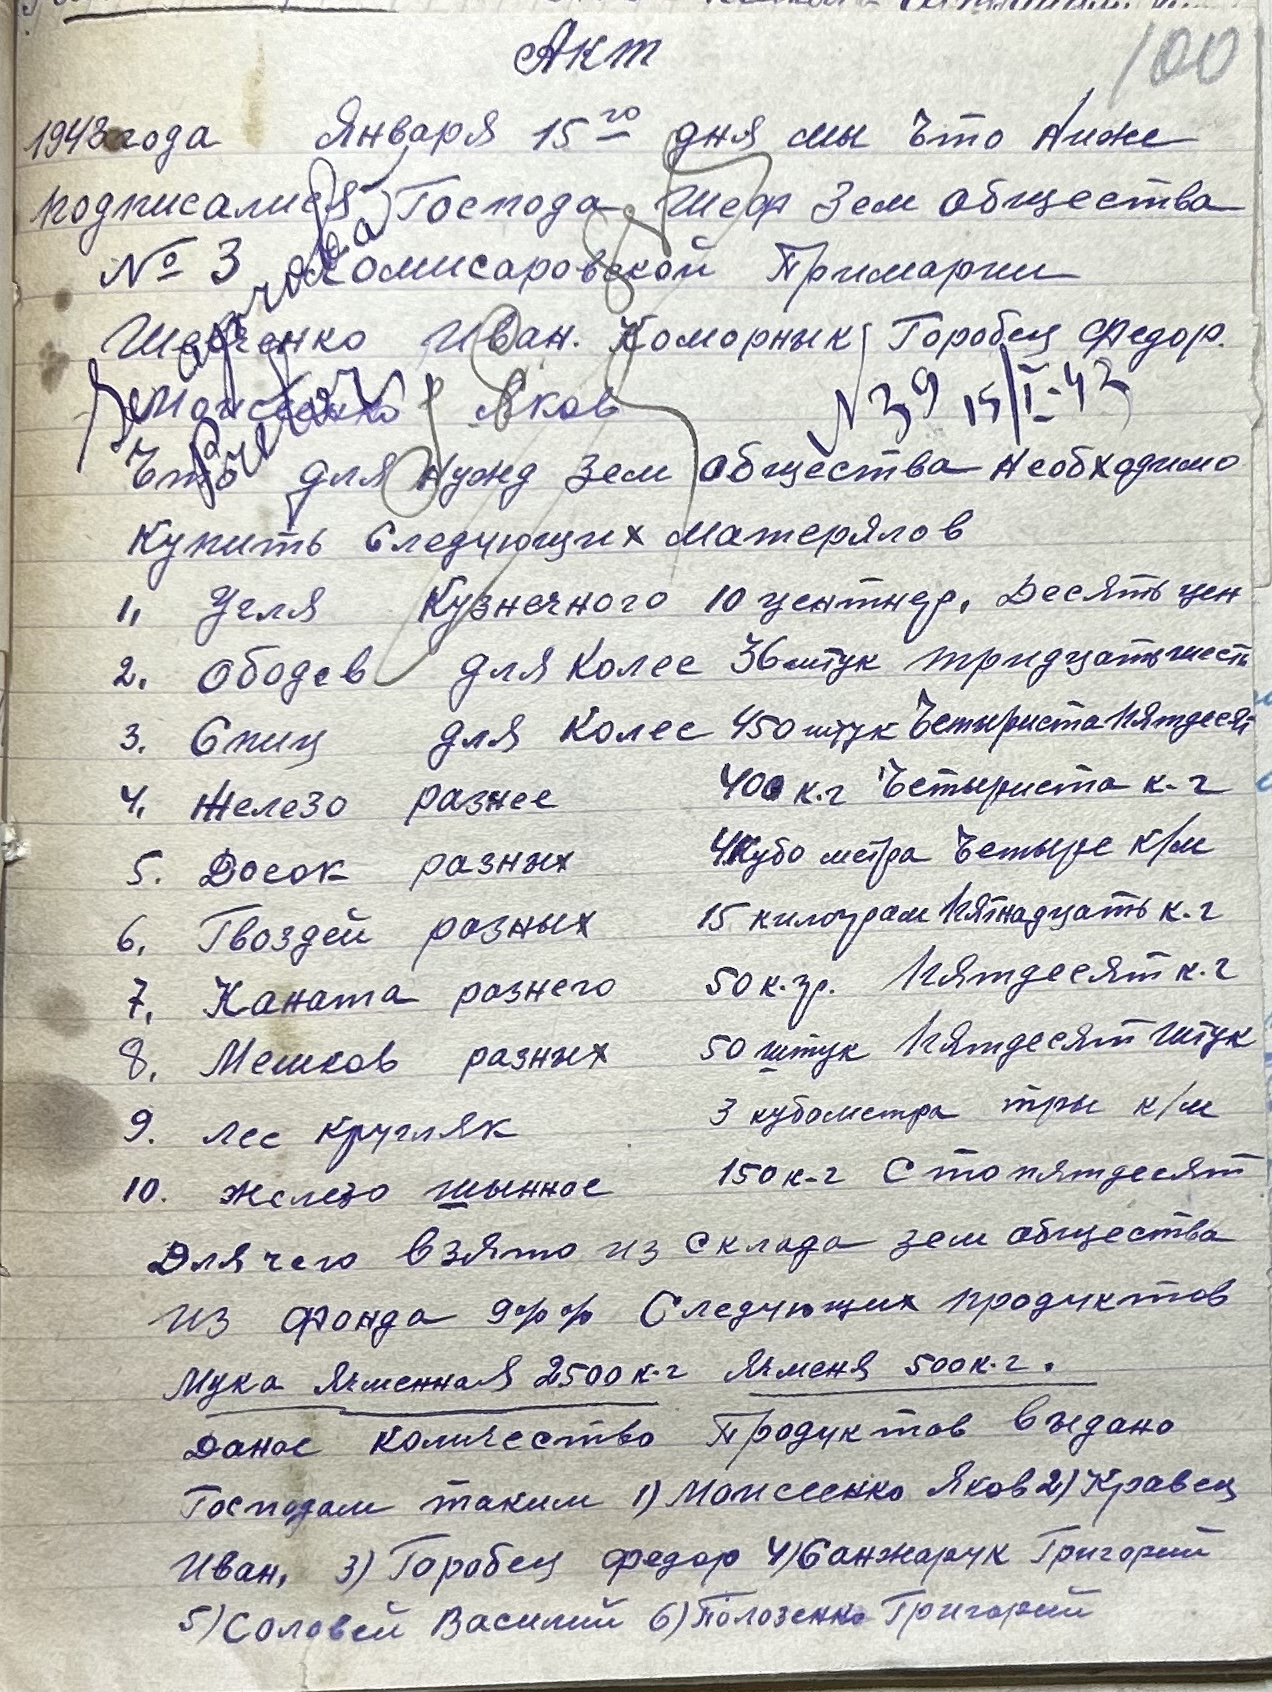 100
Акт
1943 года Января 15го дня мы Что Ниже
подписалися Господа Шеф Зем общества
№ 3 Комисаровской Примарии
Шевченко Иван. Коморнык Горобец Федор.
Моисеенко Яков
№ 39 15/I-43
Что для Нужд Зем общества Необходимо
Купить Следующих Матерялов
1, Угля Кузнечного 10 центнер, Десять цен
2, Ободов для Колес 36 штук тридцать шесть
3. Спиц для Колес 450 штук Четыриста Пятдесят
4, Железо разнее 400 к.г Четыриста к.г
5. Досок разных 4 Кубо метра Четыре к/м
6, Гвоздей разных 15 килограм Пятнадцать к.г
7, Каната разнего 50 к.гр. Пятдесят к.г
8, Мешков разных 50 штук Пятдесят штук
9. Лес кругляк 3 кубометра тры к/м
10. Железо шынное 150 к.г Сто пятдесят
Для чего Взято из Склада зем общества
из фонда 9%% Следующих Продуктов
Мука Ячменная 2500 к.г Ячменя 500 к.г.
Даное Количество Продуктов Выдано
Господам таким 1) Моисеенко Яков 2) Кравец
Иван, 3) Горобец Федор 4) Санжарук Григорий
5) Соловей Василий 6) Полозенко Григорий